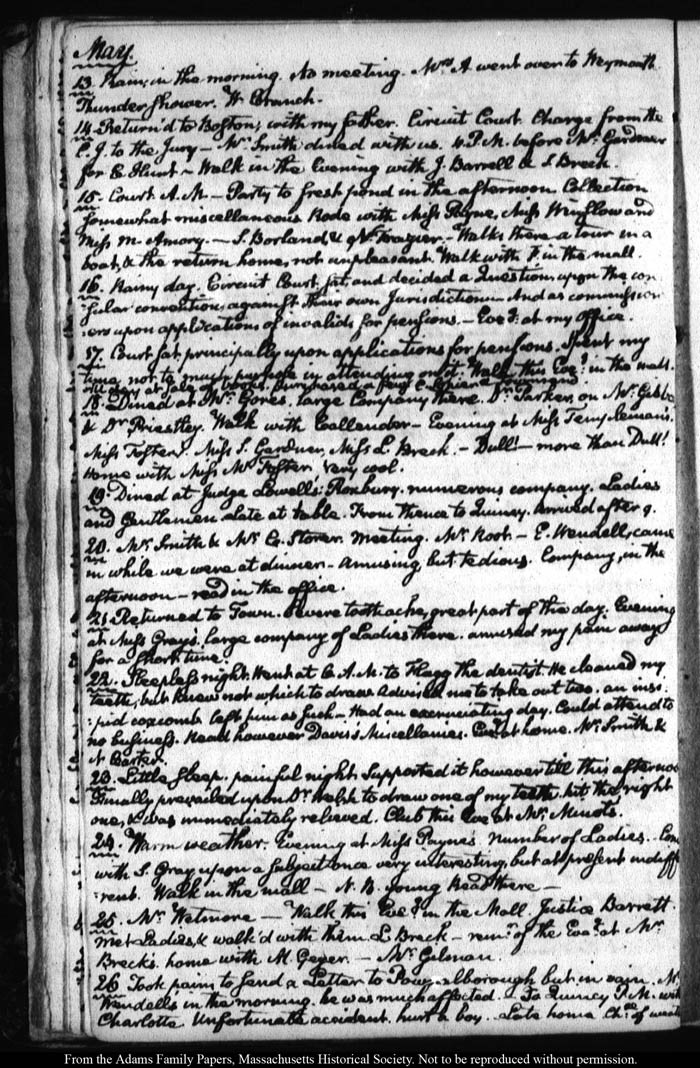 May.
13. Rain, in the morning. No meeting. Mrs. A went over to Weymouth
Thunder shower. W. Cranch.
14. Return'd to Boston, with my father. Circuit Court. Charge from the
C. J. to the Jury — Mr. Smith dined with us. 4. P.M. before Mr. Gardner
for E. Hunt — Walk in the Evening with J. Barrell & S Breck.
15. Court A.M — Party to fresh pond in the afternoon Collection
somewhat miscellaneous Rode with Miss Payne, Miss Winslow and
Miss M. Amory. — S. Borland & N. Frazier. Walks there a tour in a
boat, & the return home, not unpleasant. Walk with F. in the mall.
16. Rainy day. Circuit Court, sat, and decided a Question upon the con
:sular convention, against their own Jurisdiction — And as commission
:ers upon applications of invalids for pensions. — Eveg. at my office.
17. Court sat, principally upon applications for pensions. Spent my
time, not to much purpose in attending on it. Walk this Eveg. in the mall.
all day at sale of books. Purchased a few.
18. Dined at Mr. Gores, large Company there. Dr. Parker, on Mr. Gibbon
& Dr Priestley. Walk with Callender — Evening at Miss
Miss Foster. Miss S. Gardner, Miss L Breck. — Dull! — more than Dull!
Home with Miss M. Foster. very cool.
19. Dined at Judge Lowell's: Roxbury. numerous company. Ladies
and Gentlemen late at table. From thence to Quincy. Arrived after 9.
20. Mr. Smith & Mr. Storer. Meeting. Mr. Root. — E. Wendell, came
in while we were at dinner — Amusing, but tedious. Company, in the
afternoon — read in the office.
21. Returned to Town. Severe tooth ache, great part of this day. Evening
at Miss Gray's. large company of Ladies there. amused my pain away
for a short time.
22. Sleepless night. Went at 6 A.M. to Flagg the dentist. He cleaned my
teeth, but knew not which to draw. Advised me to take out two. an insi
:pid coxcomb left him as such — Had an excruciating day. Could attend to
no business. Read however Davis's Miscellanies. Eveg. at home. Mr. Smith &
N Barker.
23. Little sleep. painful night. Supported it however till this afternoo
Finally prevailed upon Dr. Welsh to draw one of my teeth. hit the right
one, & was immediately relieved. Club this Eve at Mr. Minots.
24. Warm weather. Evening at Miss Payne's. Number of Ladies.
with S. Gray upon a subject once very interesting, but at present indiff
:rent. Walk in the mall — N.B. young Head there —
25. Mr. Wetmore — Walk this Eveg. in the Mall. Justice Barrett.
met Ladies, & walk'd with them L Breck — remr. of the Eveg. at Mr.
Breck's. home with M. Geyer. — Mr. Gilman.
26 Took pains to send a Letter to but in vain.
Wendell's in the morning. he was much affected. To Quincy P.M. with
Charlotte Unfortunate accident. hurt a boy. Late home
From the Adams Family Papers, Massachusetts Historical Society. Not to be reproduced without permission.